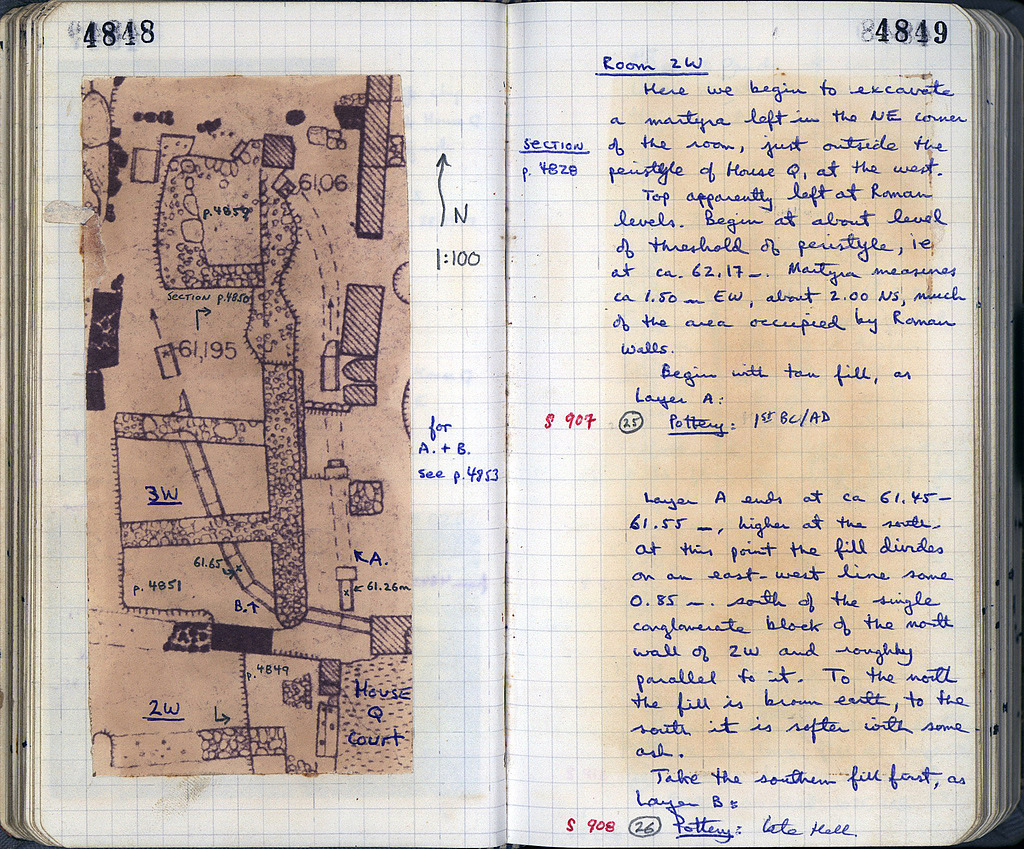 4848
61,06
p. 4858
N
1:100
SECTION p. 4850
61,195
for
A. + B.
see p. 4853
3W
61.65
A.
p. 4851
61.26m
B.
p. 4849
House
Q
Court
2W
4849
Room 2W
Here we begin to excavate
a martyra left in the NE corner
SECTION
of the room, just outside the
p. 4828
peristyle of House Q, at the west.
Top apparently left at Roman
levels. Begin at about level
of threshold of peristyle, ie
at ca. 62.17 m. Martyra measures
ca 1.50 m EW, about 2.00 NS, much
of the area occupied by Roman
walls.
Begin with tan fill, as
Layer A:
S 907 25 Pottery: 1st BC/AD
Layer A ends at ca 61.45 -
61.55 m, higher at the south.
At this point the fill divides
on an east-west line some
0.85 m. south of the single
conglomerate block of the north
wall of 2W and roughly
parallel to it. To the north
the fill is brown earth, to the
south it is softer with some
ash.
Take the southern fill first, as
Layer B:
S 908 26 Pottery: late Hell.